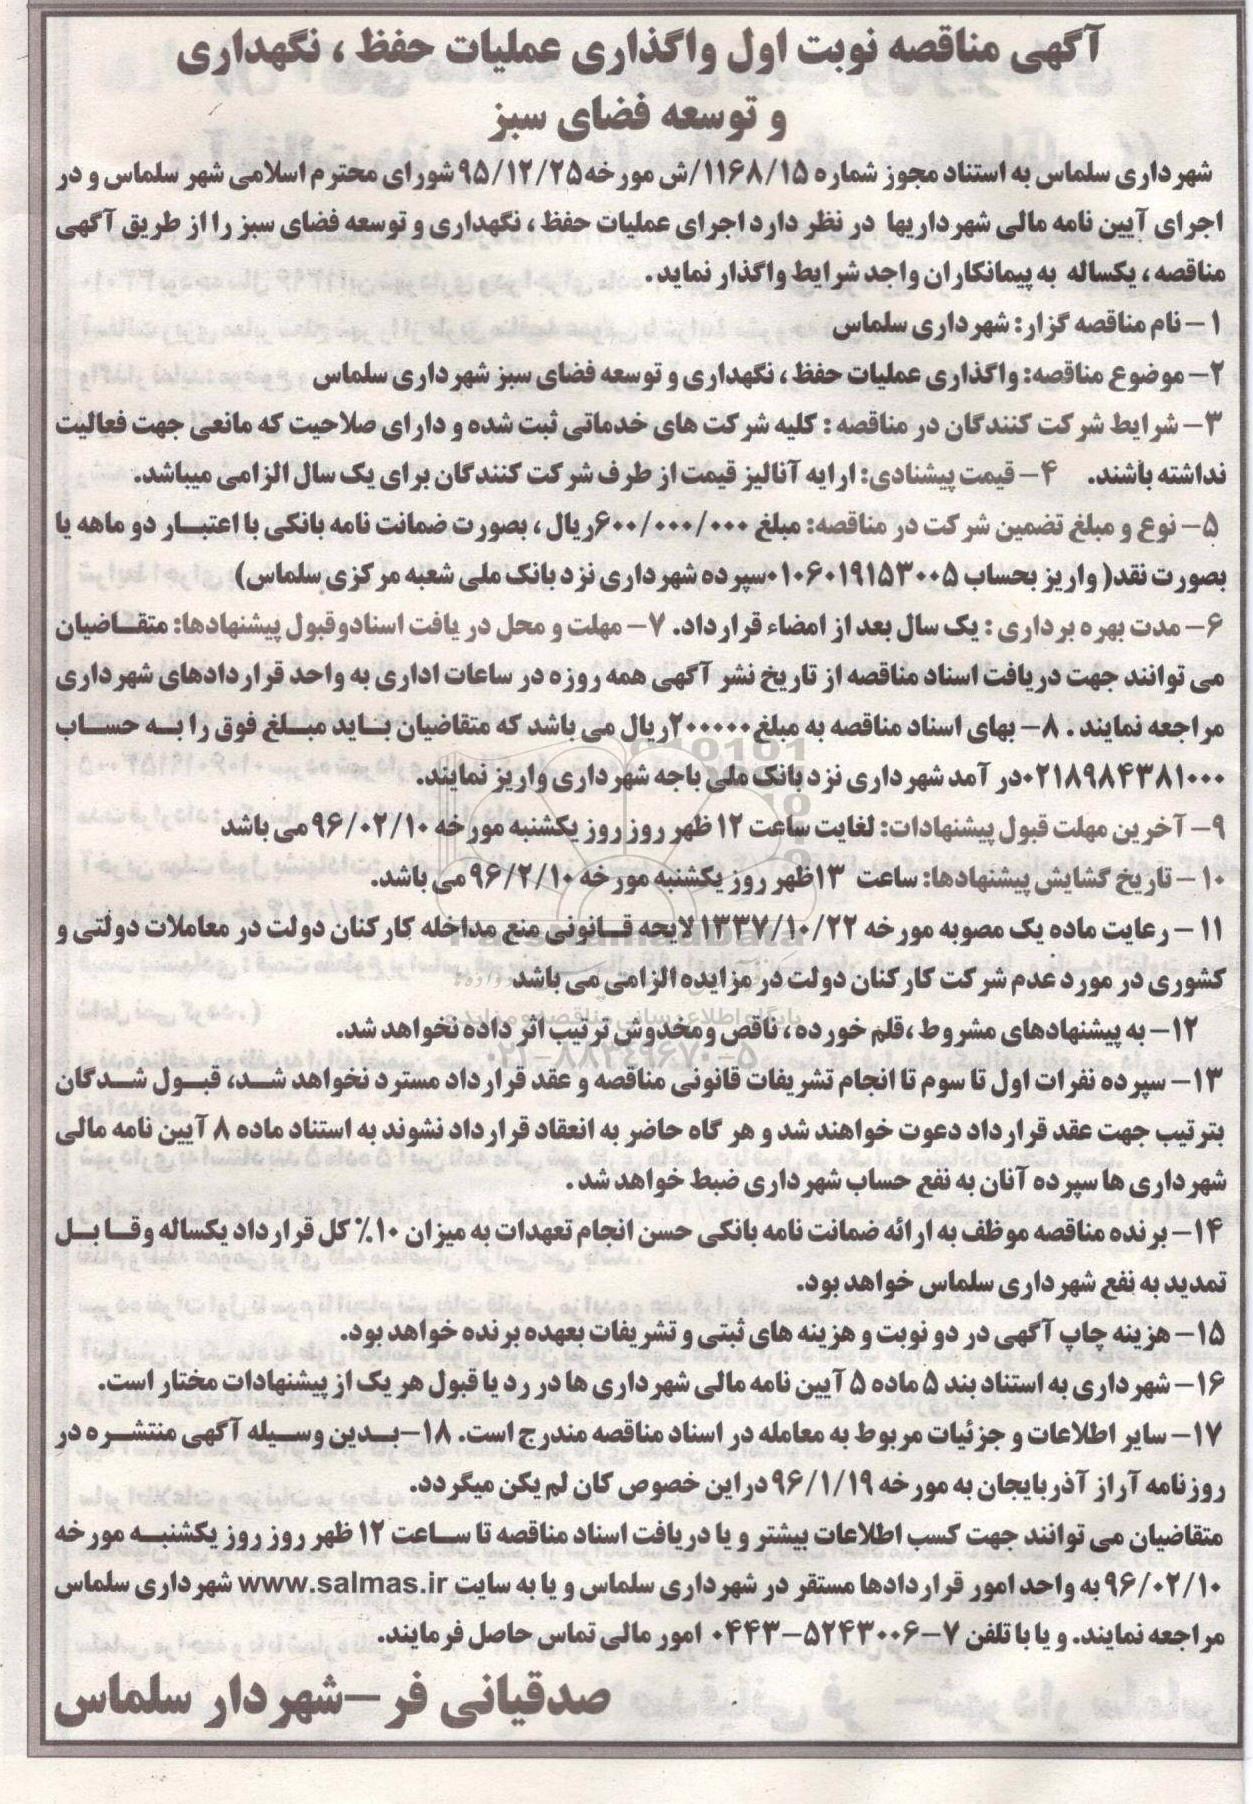 آگهی مناقصه نوبت اول واگذاری عملیات حفظ ، نگهداری
و توسعه فضای سبز
شهرداری سلماس به استناد مجوز شماره ۱۱۶۸/۱۵/ش مورخه ۹۵/۱۲/۲۵ شورای محترم اسلامی شهر سلماس و در
اجرای آیین نامه مالی شهرداریها در نظر دارد اجرای عملیات حفظ ، نگهداری و توسعه فضای سبز را از طریق آگهی
مناقصه ، یکساله به پیمانکاران واجد شرایط واگذار نماید .
۱- نام مناقصه گزار: شهرداری سلماس
۲- موضوع مناقصه: واگذاری عملیات حفظ ، نگهداری و توسعه فضای سبز شهرداری سلماس
۳- شرایط شرکت کنندگان در مناقصه : کلیه شرکت های خدماتی ثبت شده و دارای صلاحیت که مانعی جهت فعالیت
نداشته باشند. ۴- قیمت پیشنادی: ارایه آنالیز قیمت از طرف شرکت کنندگان برای یک سال الزامی میباشد.
۵- نوع و مبلغ تضمین شرکت در مناقصه: مبلغ ۶۰۰/۰۰۰/۰۰۰ریال ، بصورت ضمانت نامه بانکی با اعتبار دو ماهه یا
بصورت نقد( واریز بحساب ۰۱۰۶۰۱۹۱۵۳۰۰۵سپرده شهرداری نزد بانک ملی شعبه مرکزی سلماس)
۶- مدت بهره برداری : یک سال بعد از امضاء قرارداد. ۷- مهلت و محل دریافت اسنادوقبول پیشنهادها: متقاضیان
می توانند جهت دریافت اسناد مناقصه از تاریخ نشر آگهی همه روزه در ساعات اداری به واحد قراردادهای شهرداری
مراجعه نمایند . ۸- بهای اسناد مناقصه به مبلغ ۲۰۰۰۰۰ریال می باشد که متقاضیان باید مبلغ فوق را به حساب
۰۲۱۸۹۸۴۳۸۱۰۰۰در آمد شهرداری نزد بانک ملی باجه شهرداری واریز نمایند.
۹- آخرین مهلت قبول پیشنهادات: لغایت ساعت ۱۲ ظهر روز روز یکشنبه مورخه ۹۶/۰۲/۱۰ می باشد
۱۰- تاریخ گشایش پیشنهادها: ساعت ۱۳ظهر روز یکشنبه مورخه ۹۶/۲/۱۰ می باشد.
۱۱- رعایت ماده یک مصوبه مورخه ۱۳۳۷/۱۰/۲۲ لایحه قانونی منع مداخله کارکنان دولت در معاملات دولتی و
کشوری در مورد عدم شرکت کارکنان دولت در مزایده الزامی می باشد
۱۲- به پیشنهادهای مشروط ،قلم خورده ، ناقص ومخدوش ترتیب اثر داده نخواهد شد.
۱۳- سپرده نفرات اول تا سوم تا انجام تشریفات قانونی مناقصه و عقد قرارداد مسترد نخواهد شد، قبول شدگان
بترتیب جهت عقد قرارداد دعوت خواهند شد و هر گاه حاضر به انعقاد قرارداد نشوند به استناد ماده ۸ آیین نامه مالی
شهرداری ها سپرده آنان به نفع حساب شهرداری ضبط خواهد شد .
۱۴- برنده مناقصه موظف به ارائه ضمانت نامه بانکی حسن انجام تعهدات به میزان ۱۰٪ کل قرارداد یکساله وقابل
تمدید به نفع شهرداری سلماس خواهد بود.
۱۵- هزینه چاپ آگهی در دو نوبت و هزینه های ثبتی و تشریفات بعهده برنده خواهد بود.
۱۶- شهرداری به استناد بند ۵ ماده ۵ آیین نامه مالی شهرداری ها در رد یا قبول هر یک از پیشنهادات مختار است.
۱۷- سایر اطلاعات و جزئیات مربوط به معامله در اسناد مناقصه مندرج است. ۱۸-بدین وسیله آگهی منتشره در
روزنامه آراز آذربایجان به مورخه ۹۶/۱/۱۹ دراین خصوص کان لم یکن میگردد.
متقاضیان می توانند جهت کسب اطلاعات بیشتر و یا دریافت اسناد مناقصه تا ساعت ۱۲ ظهر روز روز یکشنبه مورخه
۹۶/۰۲/۱۰ به واحد امور قراردادها مستقر در شهرداری سلماس و یا به سایت www.salmas.ir شهرداری سلماس
مراجعه نمایند. و یا با تلفن ۷-۵۲۴۳۰۰۶-۰۴۴۳ امور مالی تماس حاصل فرمایند.
صدقیانی فر -شهردار سلماس
ParsNamadData
پایگاه اطلاع رسانی مناقصه و مزایده
۰۲۱-۸۸۳۴۹۶۷۰-۵